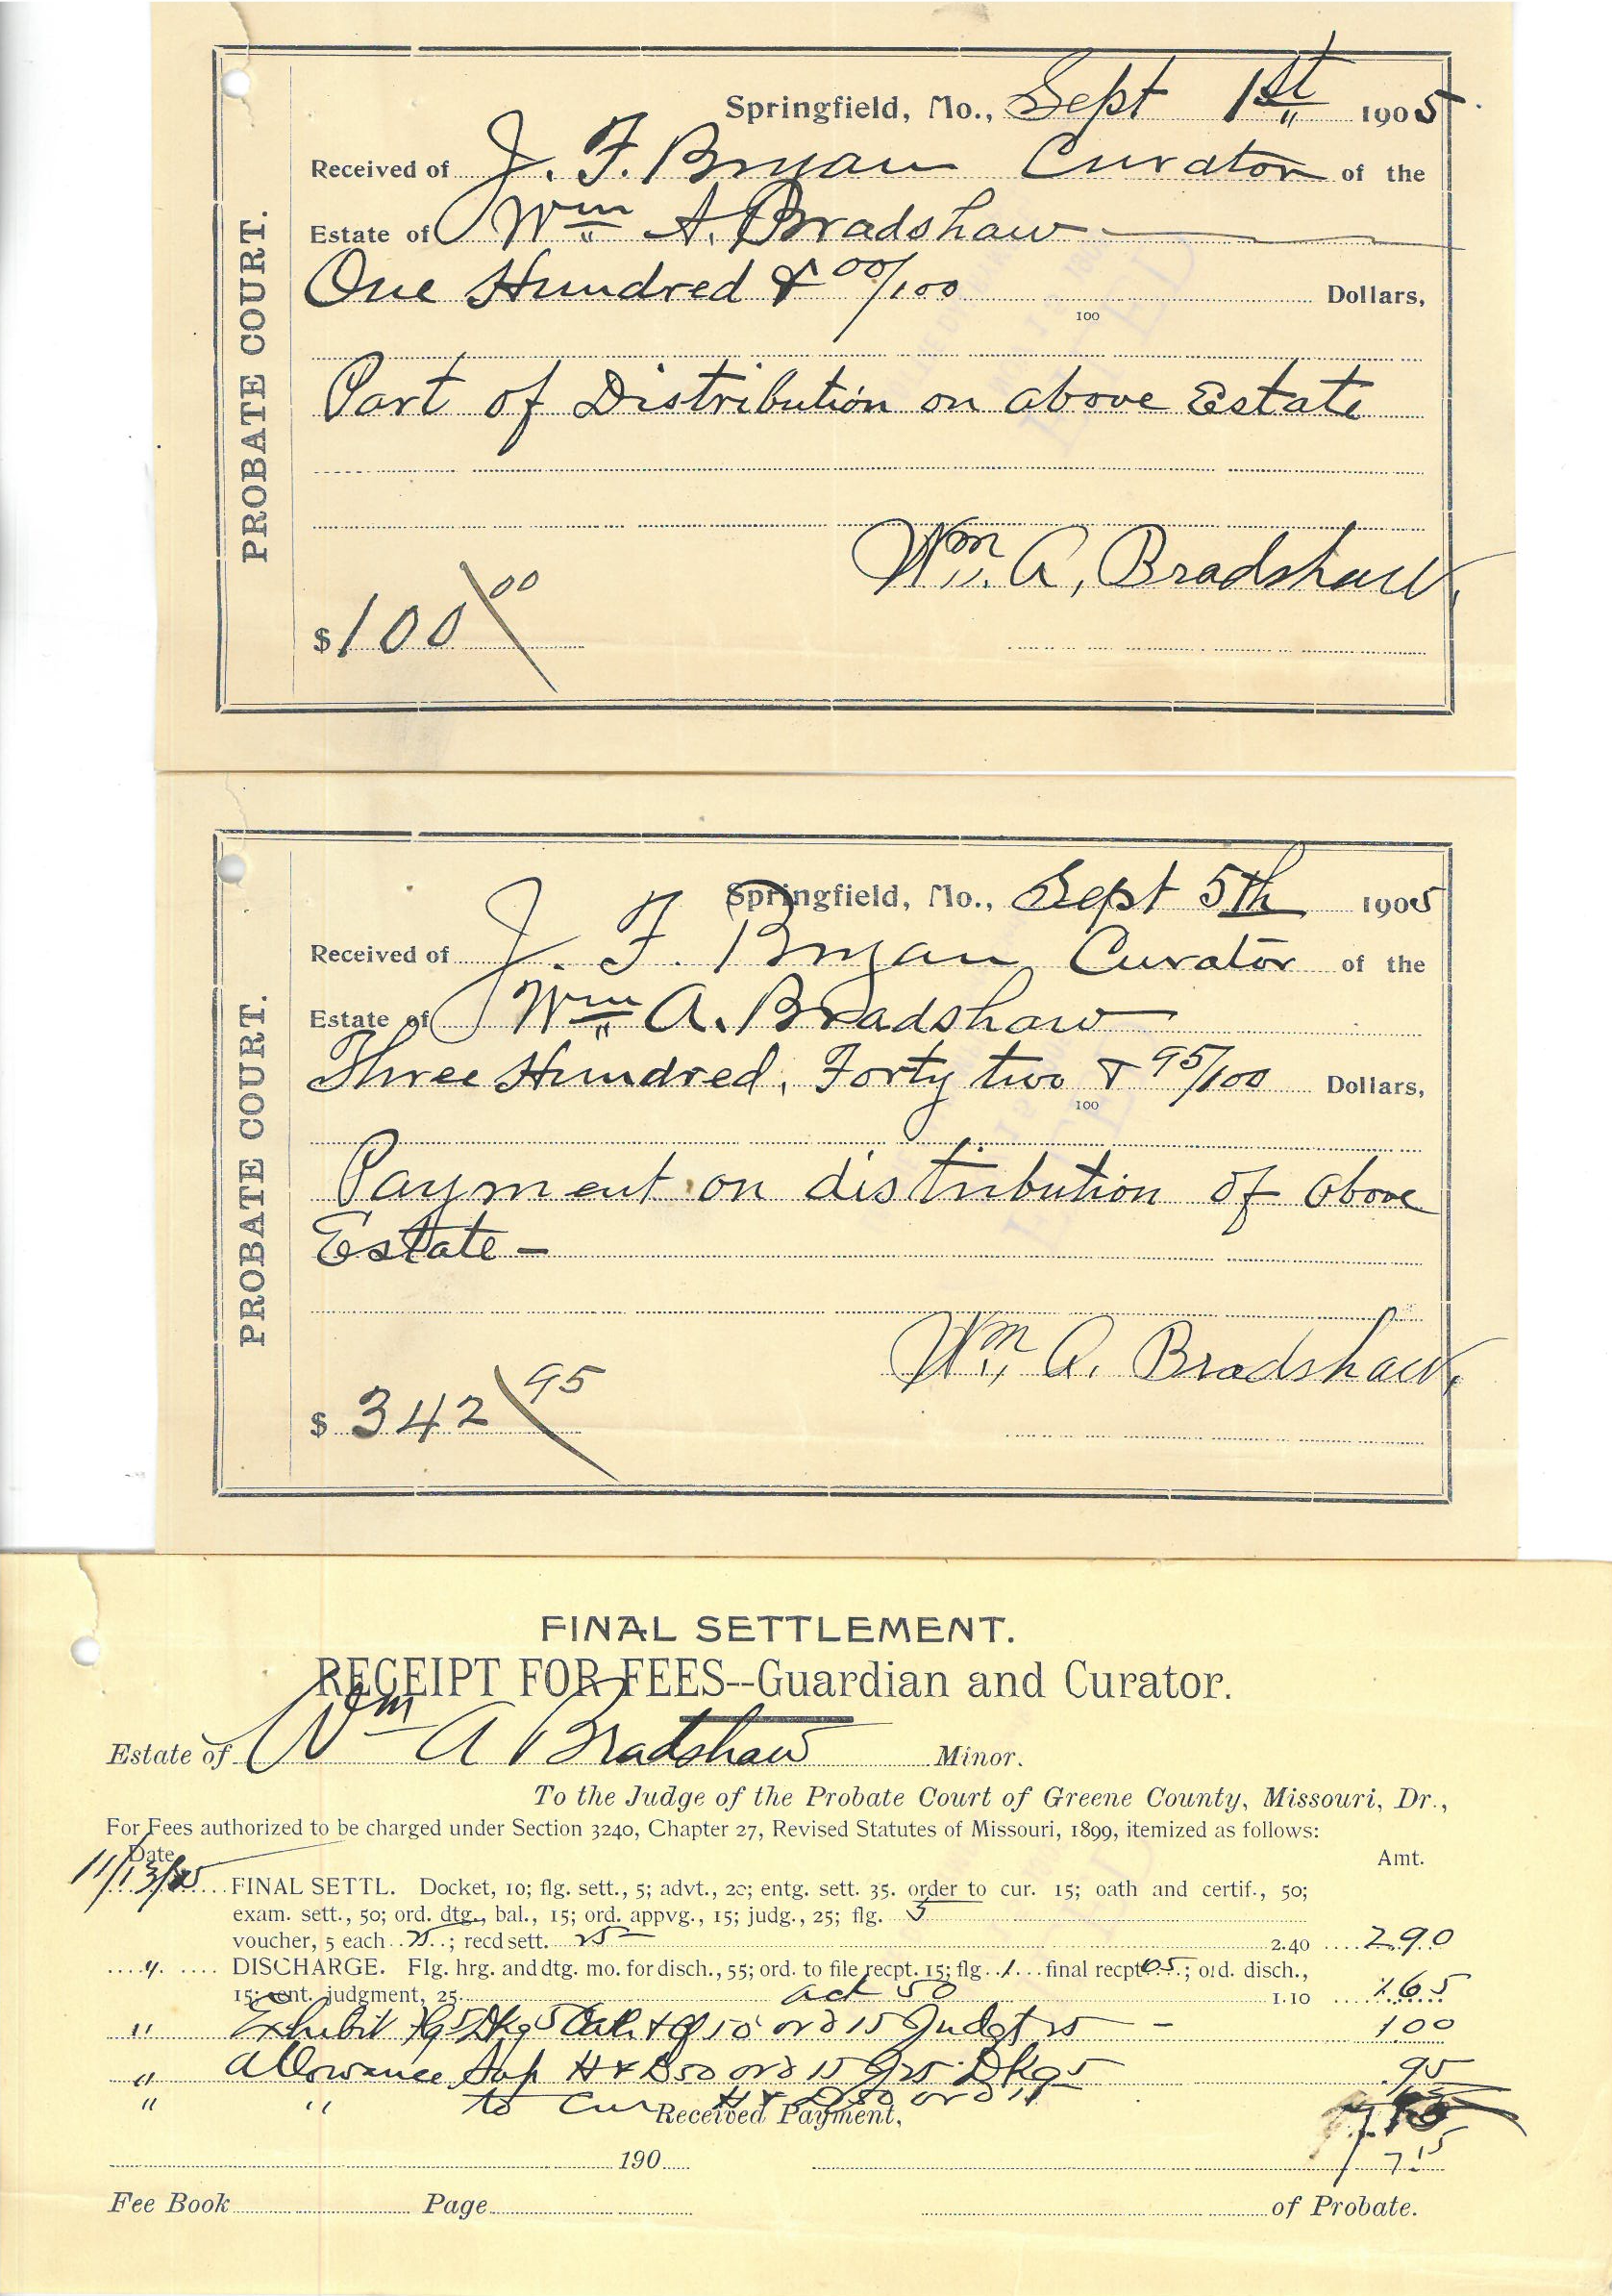 PROBATE COURT.
Springfield, Mo., Sept 1st 1905
Received of J. F. Bryan Curator of the
Estate of Wm A. Bradshaw
One Hundred & 00/100 Dollars,
100
Part of Distribution on above Estate
Wm. A, Bradshaw,
$100 00
PROBATE COURT.
Springfield, Mo., Sept 5th 1905
Received of J. F. Bryan Curator of the
Estate of Wm A. Bradshaw
Three Hundred, Forty two & 95/100 Dollars,
100
Payment on distribution of above
Estate -
Wm. A. Bradshaw,
$ 342 95
FINAL SETTLEMENT.
RECEIPT FOR FEES--Guardian and Curator.
Estate of Wm A Bradshaw Minor.
To the Judge of the Probate Court of Greene County, Missouri, Dr.,
For Fees authorized to be charged under Section 3240, Chapter 27, Revised Statutes of Missouri, 1899, itemized as follows:
Date Amt.
11/13/05 FINAL SETTL. Docket, 10; flg. sett., 5; advt., 20; entg. sett. 35. order to cur. 15; oath and certif., 50;
exam. sett., 50; ord. dtg., bal., 15; ord. appvg., 15; judg., 25; flg. 5
voucher, 5 each 25; recd sett. 25 2.40 2.90
" DISCHARGE. Flg. hrg. and dtg. mo. for disch., 55; ord. to file recpt. 15; flg. 1 final recpt 05; ord. disch.,
15; ent. judgment, 25 act 50 1.10 1.65
" Exhibit 15 Judgt 25 - 1.00
" Allowance H & D 50 ord 15 J 25 Dkg 5 .95
" " to Cur H & D 50 ord
Received Payment,
190 7.15
Fee Book Page of Probate.